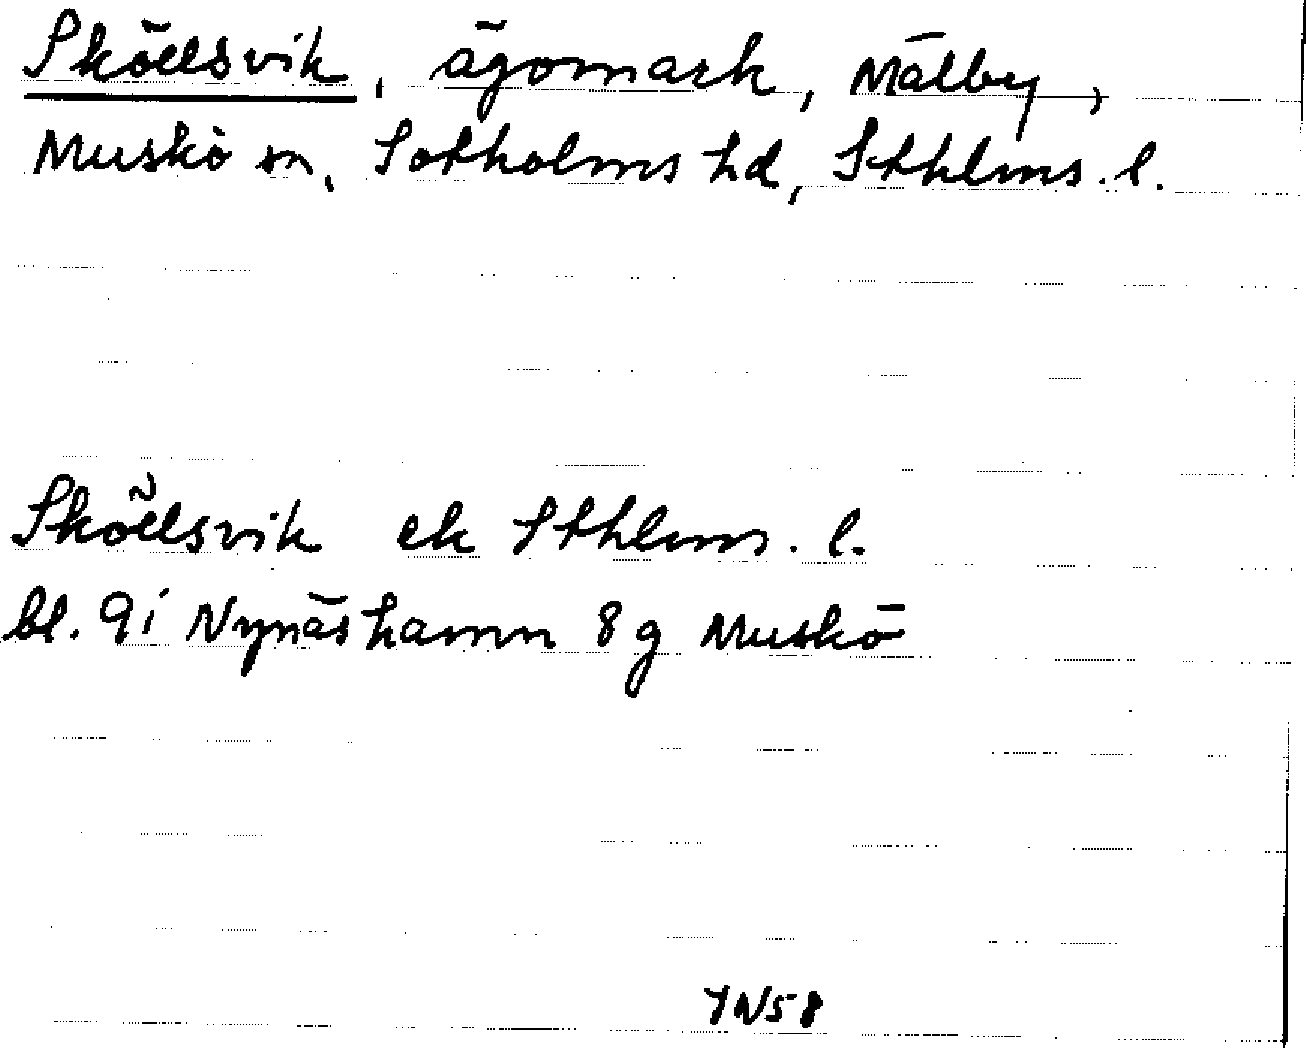 Sköllsvik, ägomark, Mälby,
Muskö sn, Sotholms hd, Sthlms. l.
Sköllsvik ek Sthlms. l.
bl. 9i Nynäshamn 8g Muskö
YN58